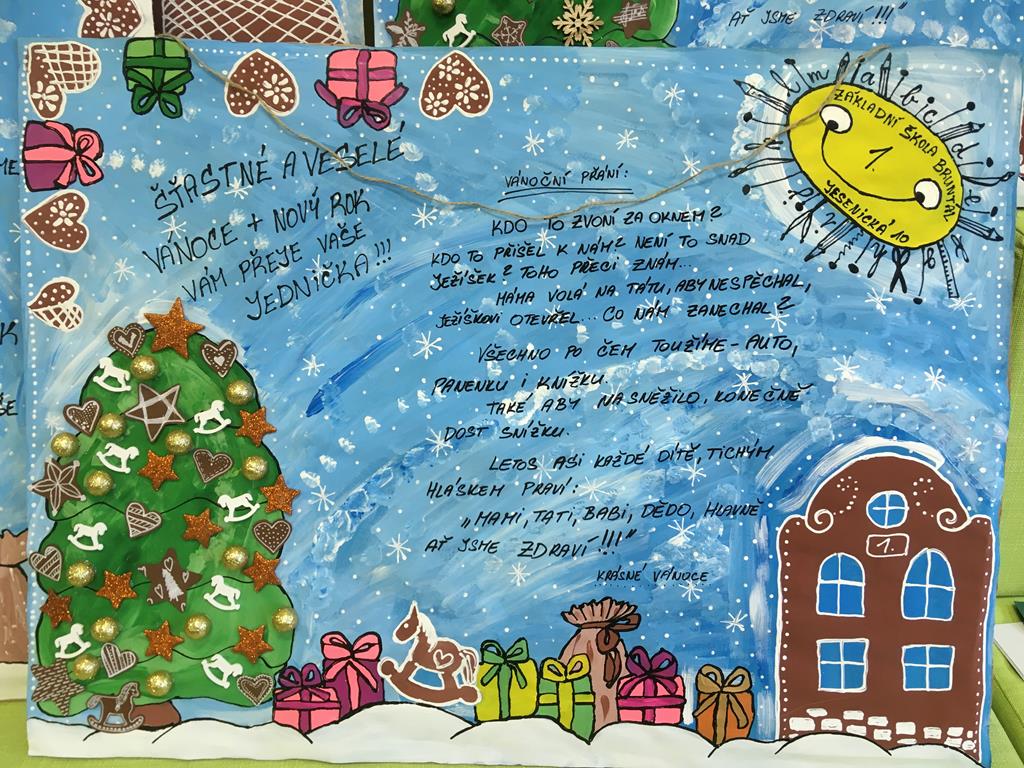 AŤ JSME ZDRAVÍ!!!"
ZÁKLADNÍ ŠKOLA BRUNTÁL
1.
JESENICKÁ 10
ŠŤASTNÉ A VESELÉ
VÁNOCE + NOVÝ ROK
VÁM PŘEJE VAŠE
JEDNIČKA!!!
VÁNOČNÍ PŘÁNÍ:
KDO TO ZVONÍ ZA OKNEM?
KDO TO PŘIŠEL K NÁM? NENÍ TO SNAD
JEŽÍŠEK? TOHO PŘECI ZNÁM...
MÁMA VOLÁ NA TÁTU, ABY NESPĚCHAL,
JEŽÍŠKOVI OTEVŘEL... CO NÁM ZANECHAL?
VŠECHNO PO ČEM TOUŽÍME - AUTO,
PANENKU I KNÍŽKU.
TAKÉ ABY NASNĚŽILO, KONEČNĚ
DOST SNÍŽKU.
LETOS ASI KAŽDÉ DÍTĚ, TICHÝM
HLÁSKEM PRAVÍ:
„MAMI, TATI, BABI, DĚDO, HLAVNĚ
AŤ JSME ZDRAVÍ!!!"
KRÁSNÉ VÁNOCE
1.